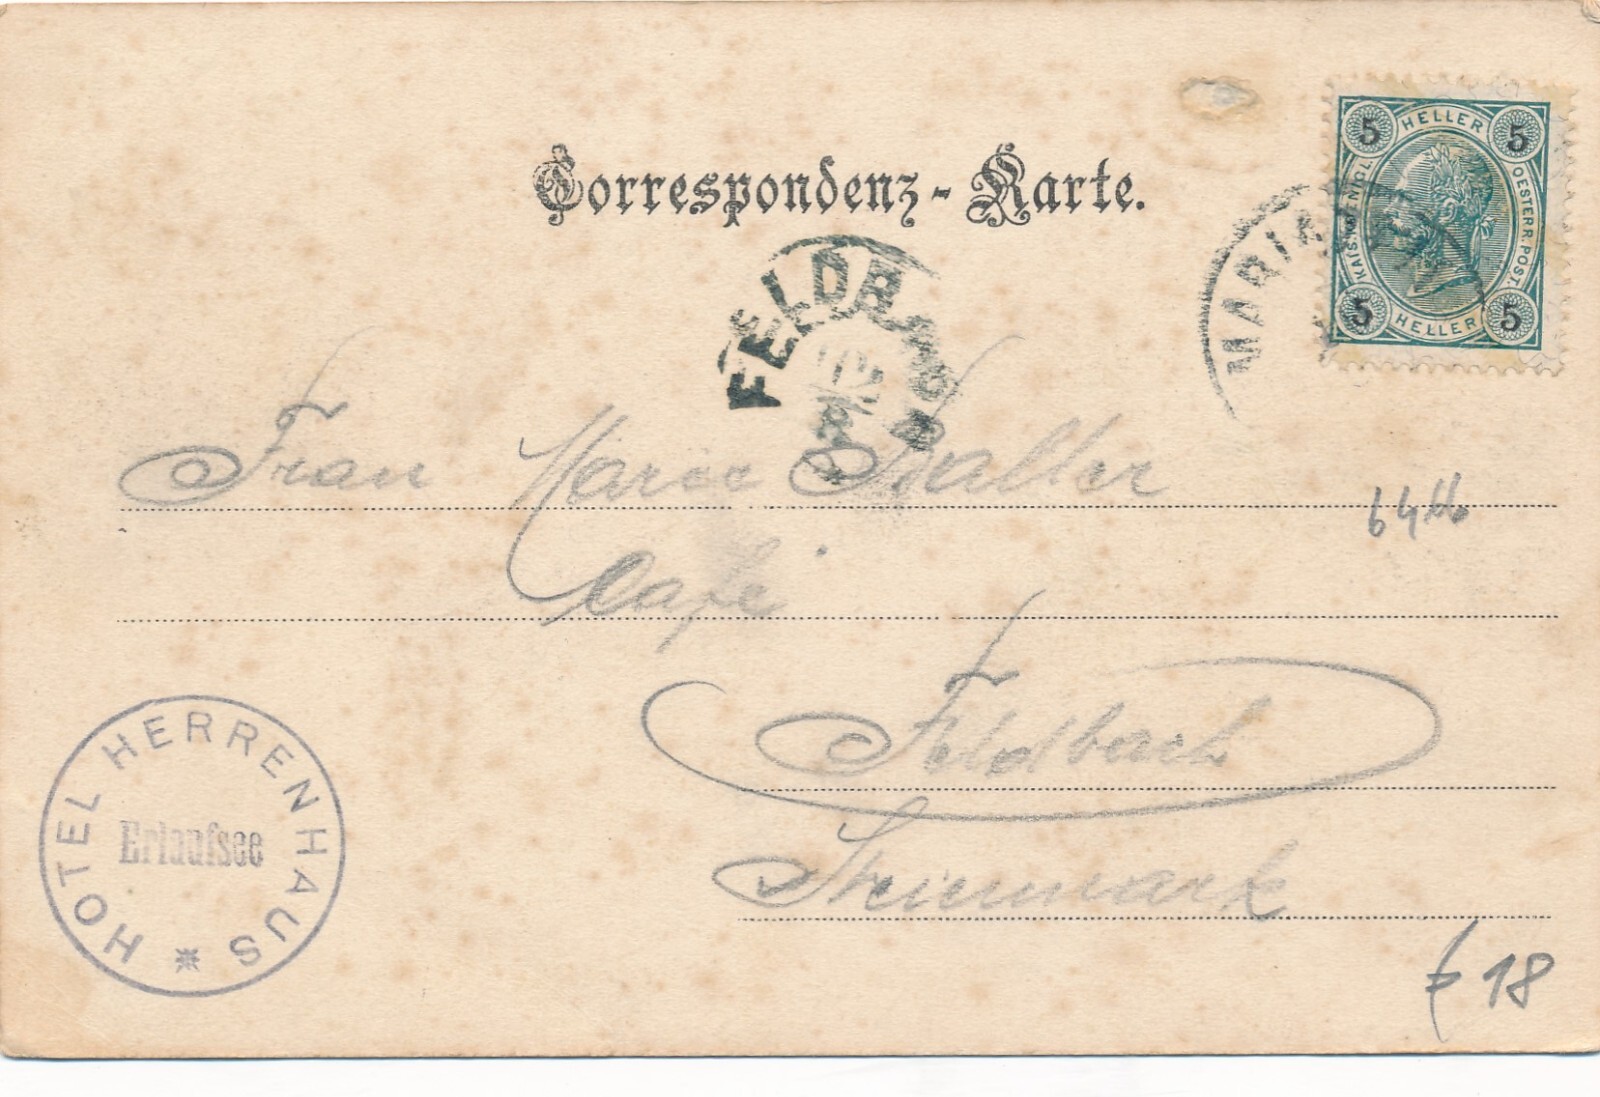 Correspondenz-Karte.
5 HELLER 5
KAIS. KÖNIGL. OESTERR. POST.
5 HELLER 5
MARIA
FELDBACH
02
Frau Marie Waller
64
Café
Feldbach
Steiermark
HOTEL HERRENHAUS
Erlaufsee
18